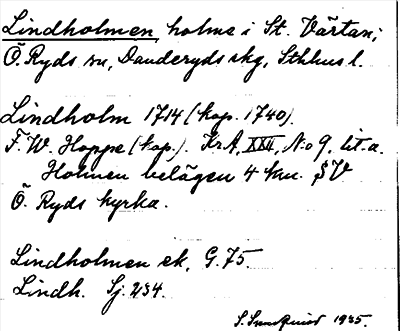 Lindholmen, holme i St. Värtan,
Ö. Ryds sn, Danderyds skg, Sthlms l.
Lindholm 1714 (kop. 1740).
F. W. Hoppe (kop.). KrA, XXII, No 9, lit. a.
Holmen belägen 4 km. SV
Ö. Ryds kyrka.
Lindholmen ek, G. 75.
Lindh. Sj. 234.
S. 1935.